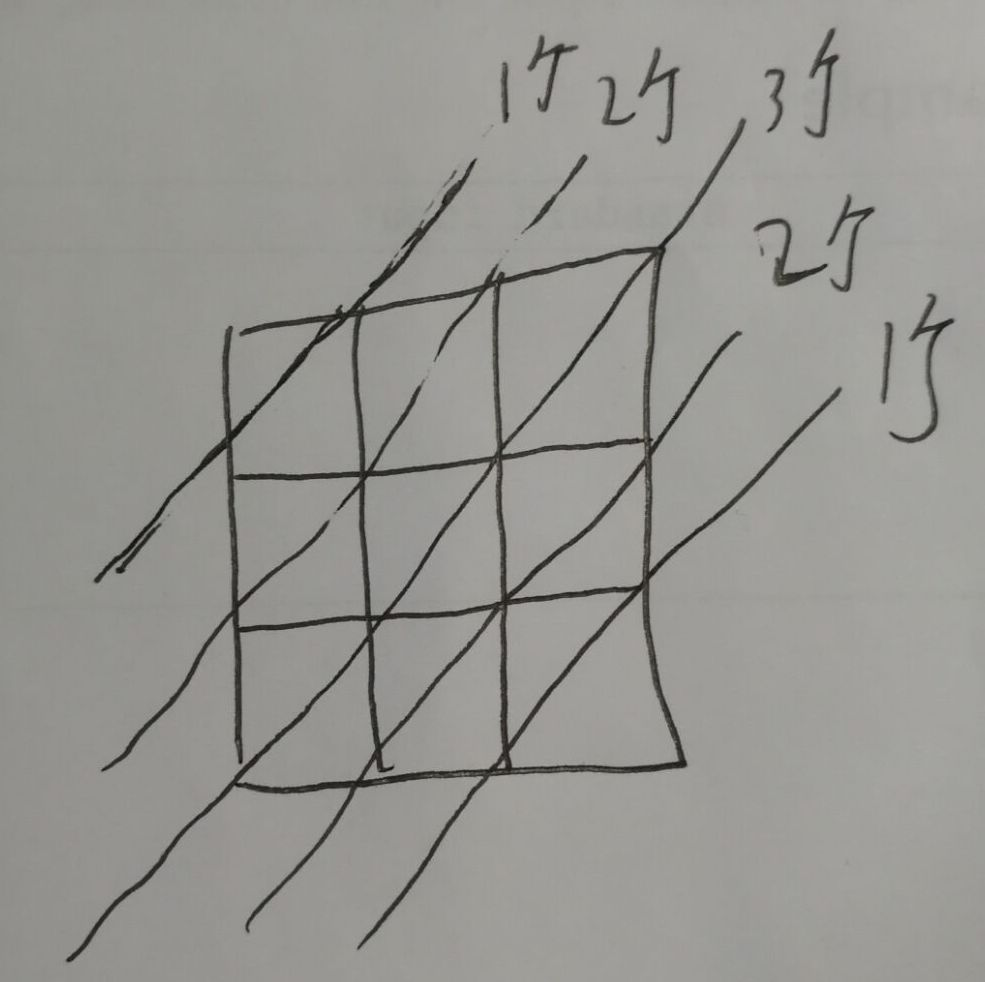 1个
2个
3个
2个
1个